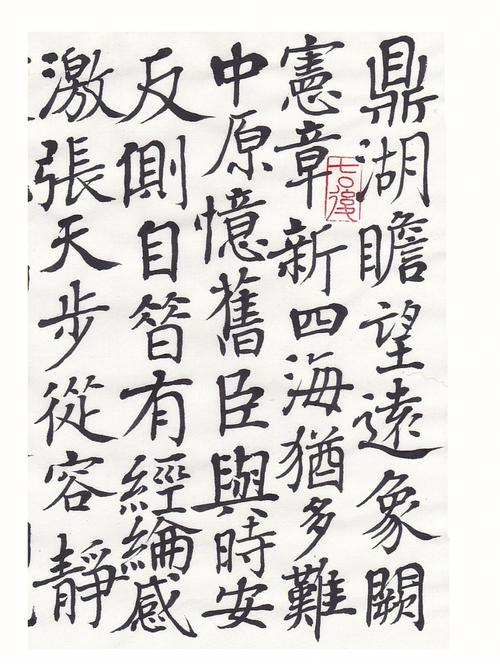 鼎湖瞻望遠象闕
憲章新四海猶多難
中原憶舊臣與時安
反側自昔有經綸感
激張天步從容靜